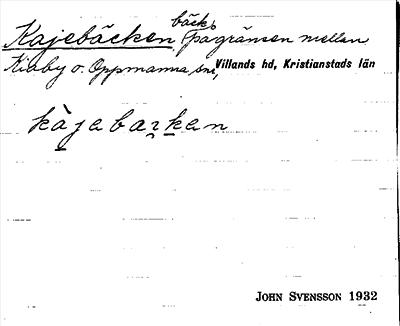 Kajebäcken, bäck på gränsen mellan
Kiaby o. Oppmanna snr, Villands hd, Kristianstads län
kàjebaʐkan
JOHN SVENSSON 1932